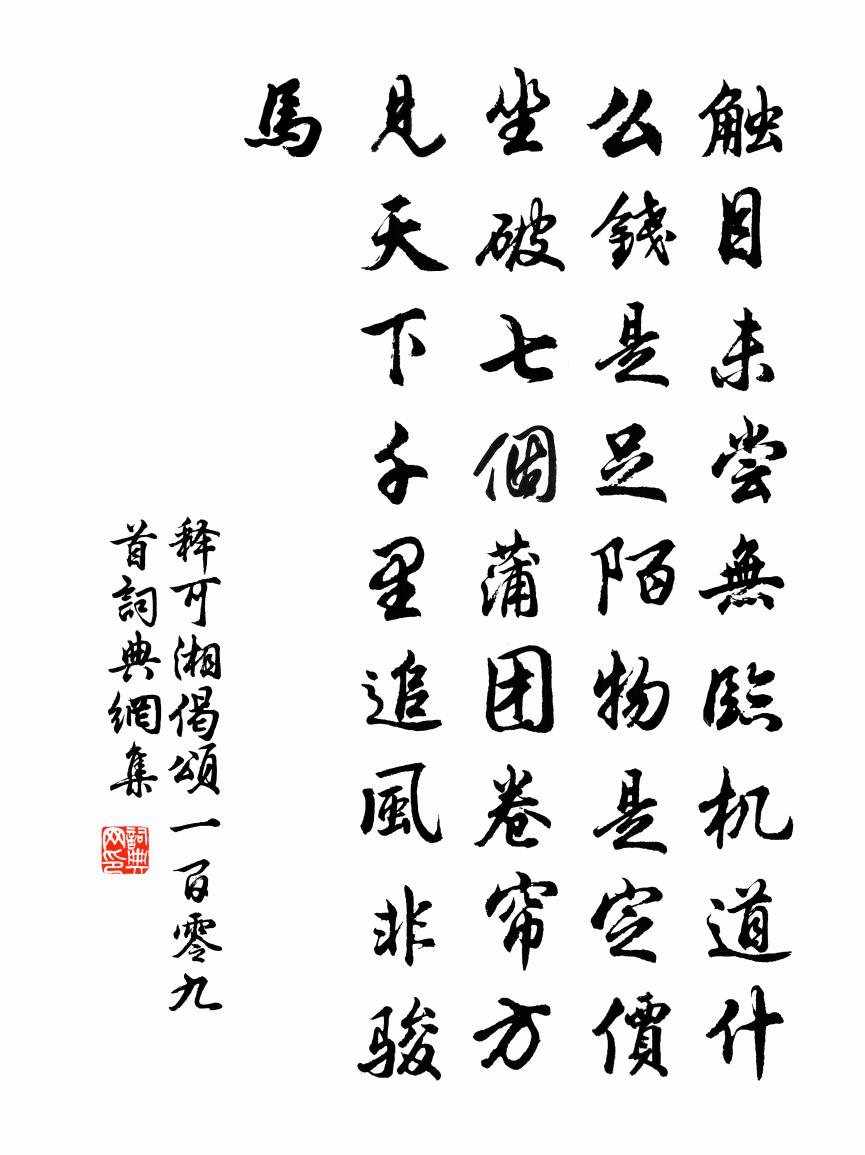 触目未尝無臨机道什
么錢是足陌物是定價
坐破七個蒲团卷帘方
見天下千里追風非駿
馬
释可湘偈頌一百零九
首詞典網集
詞典
网印